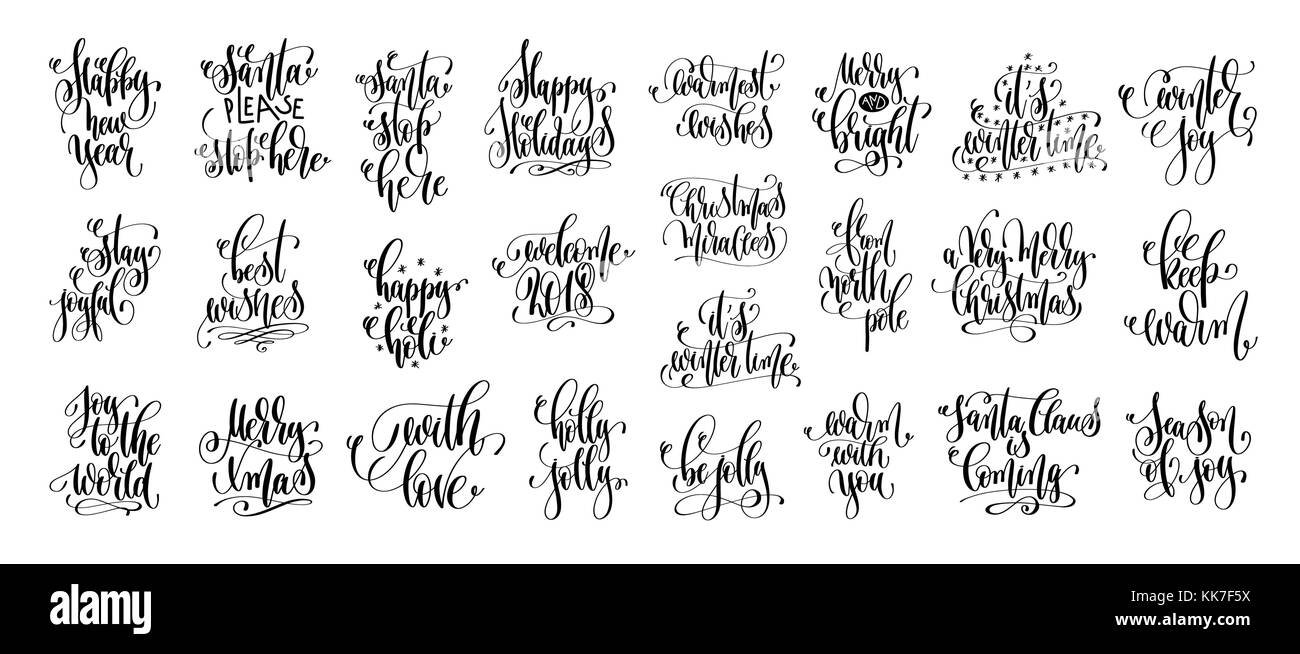 Happy
new
year
Santa
PLEASE
stop here
Santa
stop
here
Happy
Holidays
warmest
wishes
Merry
AND
bright
it's
winter time
winter
joy
stay
joyful
best
wishes
happy
holi
welcome
2018
Christmas
Miracles
it's
winter time
from
north
pole
a Very Merry
Christmas
keep
warm
Joy
to the
world
Merry
Xmas
with
love
holly
jolly
be jolly
warm
with
you
Santa Claus
is
Coming
Season
of joy
alamy stock photo
KK7F5X
www.alamy.com